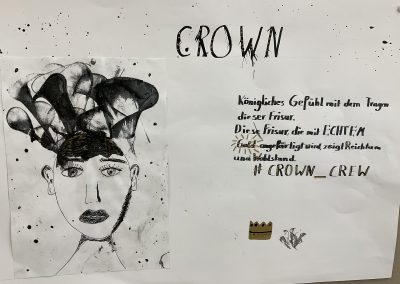 CROWN
Königliches Gefühl mit dem Tragen
dieser Frisur.
Diese Frisur, die mit ECHTEM
Gold angefertigt wird, zeigt Reichtum
und Wohlstand.
# CROWN_CREW